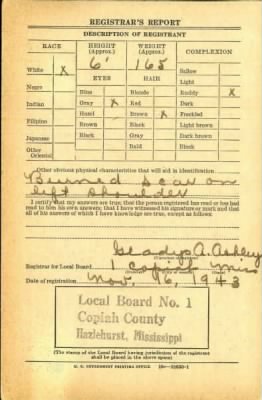 REGISTRAR'S REPORT
DESCRIPTION OF REGISTRANT
RACE HEIGHT (Approx.) WEIGHT (Approx.) COMPLEXION
White X 6' 165 Sallow
EYES HAIR Light
Negro Blue Blonde Ruddy X
Indian Gray X Red Dark
Hazel Brown X Freckled
Filipino Brown Black Light brown
Japanese Black Gray Dark brown
Other Oriental Bald Black
Other obvious physical characteristics that will aid in identification
Burned scar on
left shoulder
I certify that my answers are true; that the person registered has read or has had
read to him his own answers; that I have witnessed his signature or mark and that
all of his answers of which I have knowledge are true, except as follows:
Gladys A. Ashley
Registrar for Local Board 1 Copiah Miss
Date of registration Nov. 16, 1943
Local Board No. 1
Copiah County
Hazlehurst, Mississippi
(The stamp of the Local Board having jurisdiction of the registrant
shall be placed in the above space)
U. S. GOVERNMENT PRINTING OFFICE